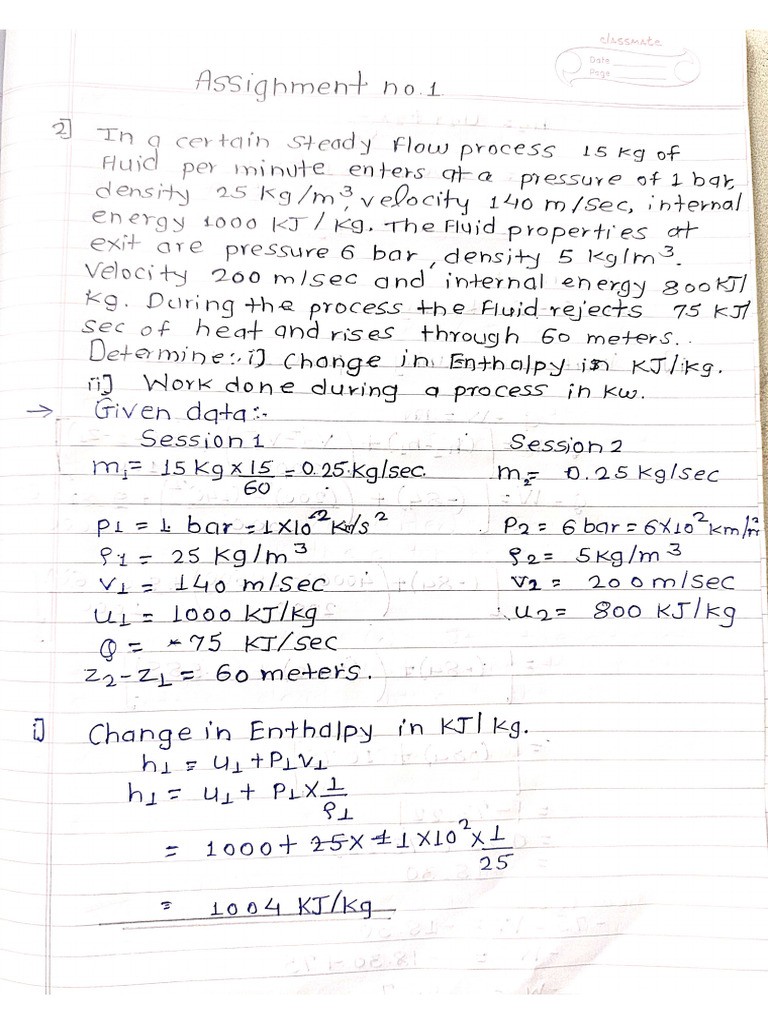 classmate
Date
Page
Assignment no.1
2] In a certain steady flow process 15 kg of
fluid per minute enters at a pressure of 1 bar,
density 25 kg/m³, velocity 140 m/sec, internal
energy 1000 KJ / kg. The fluid properties at
exit are pressure 6 bar, density 5 kg/m³.
Velocity 200 m/sec and internal energy 800 KJ/
kg. During the process the fluid rejects 75 KJ/
sec of heat and rises through 60 meters..
Determine:. i) Change in Enthalpy in KJ/kg.
ii] Work done during a process in kw.
→ Given data:-
Session 1 Session 2
m₁ = 15 kg × 15/60 = 0.25 kg/sec. m₂ = 0.25 kg/sec
P1 = 1 bar = 1×10² P2 = 6 bar = 6×10²
ρ1 = 25 kg/m³ ρ2 = 5kg/m³
V1 = 140 m/sec V2 = 200 m/sec
U1 = 1000 KJ/kg U2 = 800 KJ/kg
Q = -75 KJ/sec
Z2-Z1 = 60 meters.
i) Change in Enthalpy in KJ/kg.
h1 = U1 + P1V1
h1 = U1 + P1 × 1/ρ1
= 1000 + 1×10² × 1/25
= 1004 KJ/kg